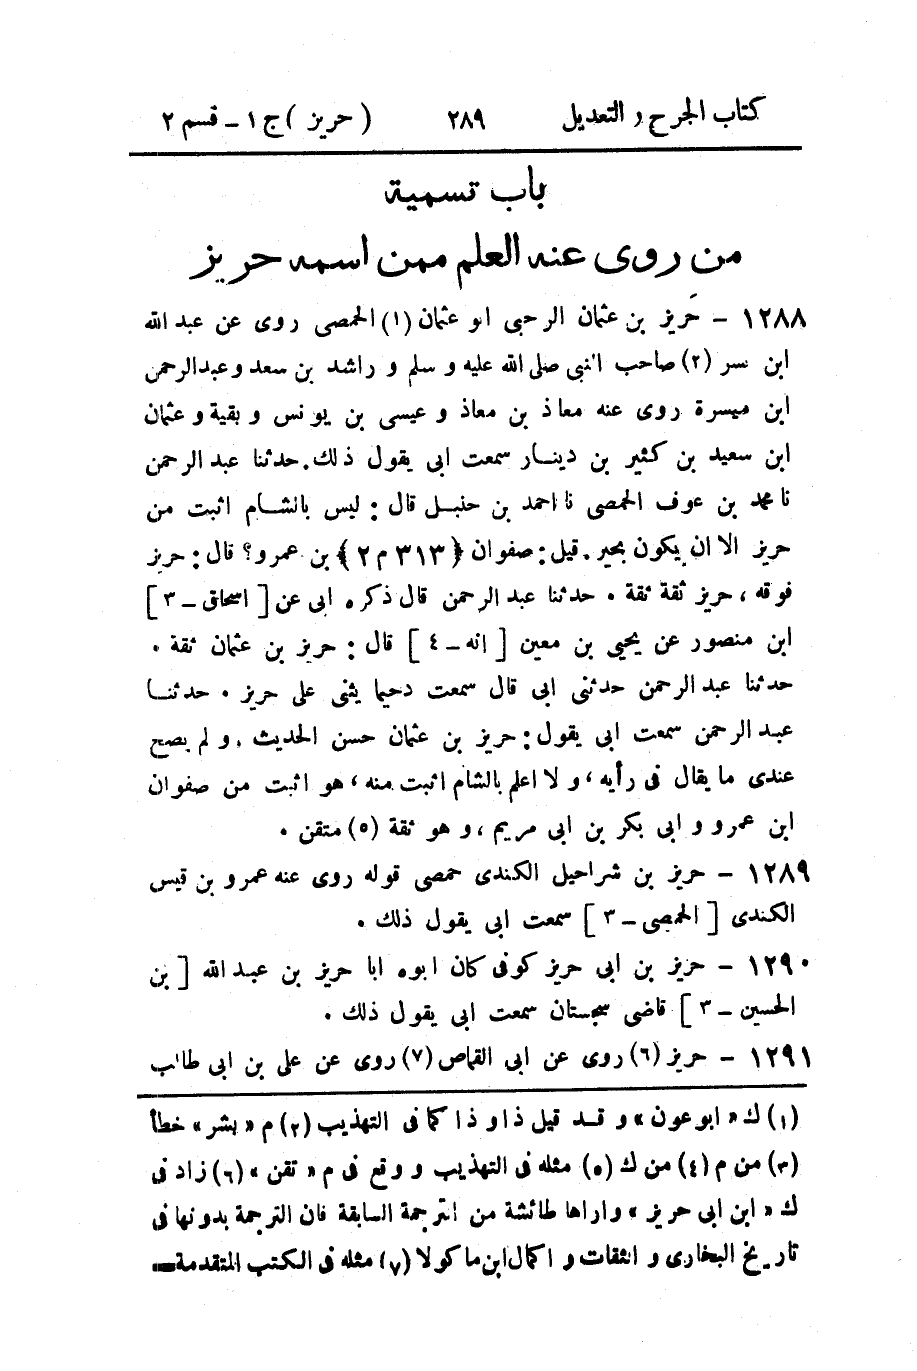 كتاب الجرح و التعديل ٢٨٩ ( حريز ) ج ١ ـ قسم ٢
باب تسمية
من روى عنه العلم ممن اسمه حريز
١٢٨٨ - حَريز بن عثمان الرحبى ابو عثمان (١) الحمصى روى عن عبد الله
ابن بسر (٢) صاحب النبى صلى الله عليه و سلم و راشد بن سعد وعبدالرحمن
ابن ميسرة روى عنه معاذ بن معاذ و عيسى بن يونس و بقية و عثمان
ابن سعيد بن كثير بن دينار سمعت ابى يقول ذلك. حدثنا عبد الرحمن
نا محمد بن عوف الحمصى نا احمد بن حنبل قال : ليس بالشام اثبت من
حريز الا ان يكون بحير. قيل : صفوان ﴿٣١٣ م ٢﴾ بن عمرو؟ قال : حريز
فوقه ، حريز ثقة ثقة . حدثنا عبد الرحمن قال ذكره ابى عن [ اسحاق ـ ٣ ]
ابن منصور عن يحيى بن معين [ انه ـ ٤ ] قال : حريز بن عثمان ثقة .
حدثنا عبد الرحمن حدثنى ابى قال سمعت دحيما يثنى على حريز . حدثنا
عبد الرحمن سمعت ابى يقول : حريز بن عثمان حسن الحديث . و لم يصح
عندى ما يقال فى رأيه ، و لا اعلم بالشام اثبت منه ، هو اثبت من صفوان
ابن عمرو و ابى بكر بن ابى مريم ، و هو ثقة (٥) متقن .
١٢٨٩ - حريز بن شراحيل الكندى حمصى قوله روى عنه عمرو بن قيس
الكندى [ الحمصى ـ ٣ ] سمعت ابى يقول ذلك .
١٢٩٠ - حريز بن ابى حريز كوفى كان ابوه ابا حريز بن عبد الله [ بن
الحسين ـ ٣ ] قاضى سجستان سمعت ابى يقول ذلك .
١٢٩١ - حريز (٦) روى عن ابى القماص (٧) روى عن على بن ابى طالب
(١) ك « ابو عون » و قد قيل ذا و ذا كما فى التهذيب (٢) م « بشر » خطأ
(٣) من م (٤) من ك (٥) مثله فى التهذيب و وقع فى م « تقن » (٦) زاد فى
ك « ابن ابى حريز » واراها طائشة من الترجمة السابقة فان الترجمة بدونها فى
تاريخ البخارى و الثقات و اكمال ابن ماكولا (٧) مثله فى الكتب المتقدمة=